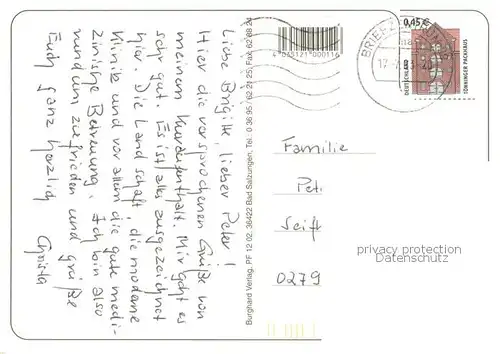 Liebe Brigitte, lieber Peter!
Hier die versprochenen Grüße von
meinem Kuraufenthalt. Mir geht es
sehr gut. Es ist alles ausgezeichnet
hier. Die Landschaft, die moderne
Klinik und vor allem die gute medi-
zinische Betreuung. Ich bin also
rundum zufrieden und grüße
Euch ganz herzlich
Christa
Burghard Verlag, PF 12 02, 36422 Bad Salzungen, Tel.: 0 36 95 / 02 21 25, Fax 62 08 24
4 078121 000116
BRIEF
0,45€
DEUTSCHLAND
TÖNNINGER PACKHAUS
Familie
Pet.
Seift
0279
privacy protection
Datenschutz